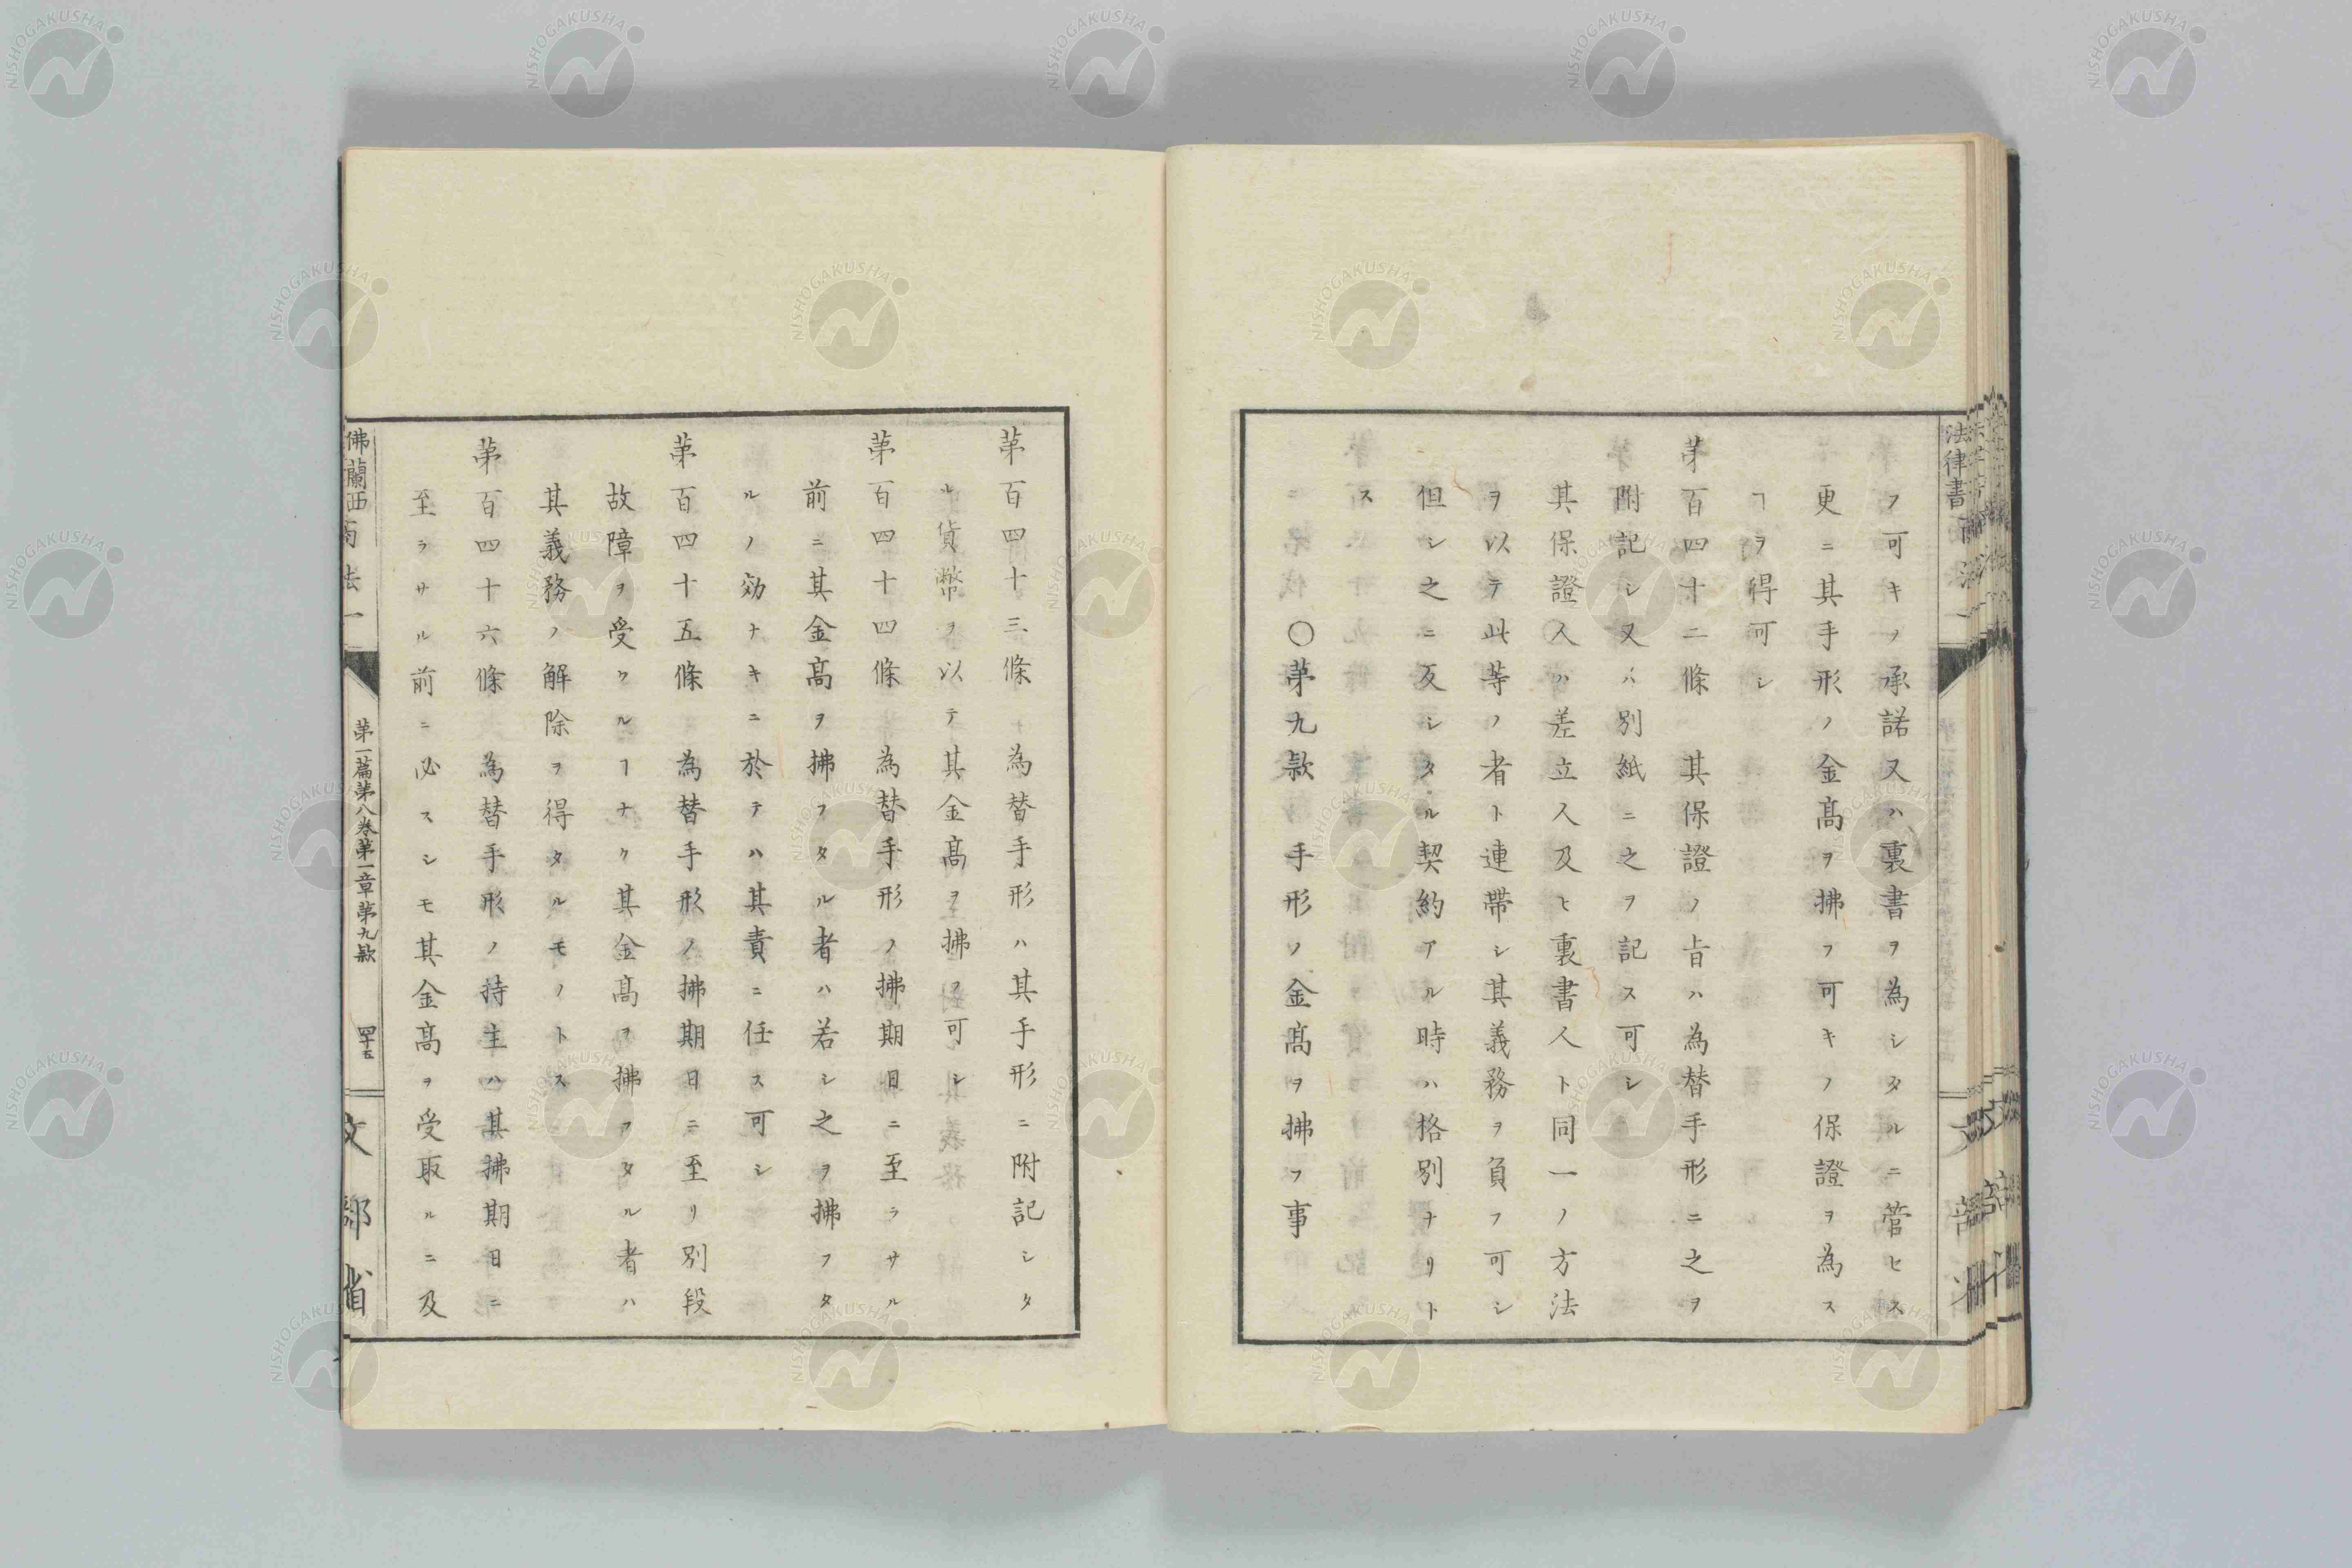 フ可キノ承諾又ハ裏書ヲ為シタルニ管セス
更ニ其手形ノ金髙ヲ拂フ可キノ保證ヲ為ス
ヿヲ得可シ
苐百四十二條　其保證ノ旨ハ為替手形ニ之ヲ
附記シ又ハ別紙ニ之ヲ記ス可シ
其保證人ハ差立人及ヒ裏書人ト同一ノ方法
ヲ以テ此等ノ者ト連帶シ其義務ヲ負フ可シ
但シ之ニ反シタル契約アル時ハ格別ナリト
ス
〇苐九款　手形ノ金髙ヲ拂フ事
苐百四十三條　為替手形ハ其手形ニ附記シタ
ル貨幣ヲ以テ其金髙ヲ拂フ可シ
苐百四十四條　為替手形ノ拂期日ニ至ラサル
前ニ其金髙ヲ拂フタル者ハ若シ之ヲ拂フタ
ルノ効ナキニ於テハ其責ニ任ス可シ
苐百四十五條　為替手形ノ拂期日ニ至リ別段
故障ヲ受クルヿナク其金髙ヲ拂フタル者ハ
其義務ノ解除ヲ得タルモノトス
苐百四十六條　為替手形ノ持主ハ其拂期日ニ
至ラサル前ニ必スシモ其金髙ヲ受取ルニ及
佛蘭西商法一
第一篇第八巻第一章第九款
四十五
文部省
法律書
NISHOGAKUSHA